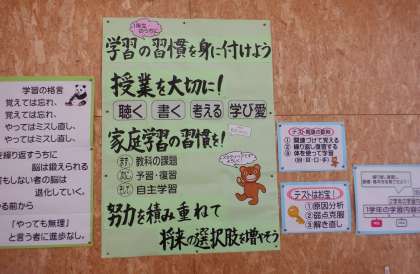 学習の格言
覚えては忘れ、
覚えては忘れ、
やってはミスし直し、
やってはミスし直し、
繰り返すうちに
脳は鍛えられる
何もしない者の脳は
退化していく。
やる前から
「やっても無理」
と言う者に進歩なし。
1年生のうちに
学習の習慣を身に付けよう
授業を大切に!
聴く 書く 考える 学び愛
家庭学習の習慣を!
教科の課題
予習・復習
自主学習
努力を積み重ねて
将来の選択肢を増やそう
テスト勉強の鉄則
① 関連づけて覚える
② 繰り返し復習する
③ 体を使って学習
(目・耳・口・手)
テストはお宝!
①原因分析
②弱点克服
③解き直し
1学年の学習内容